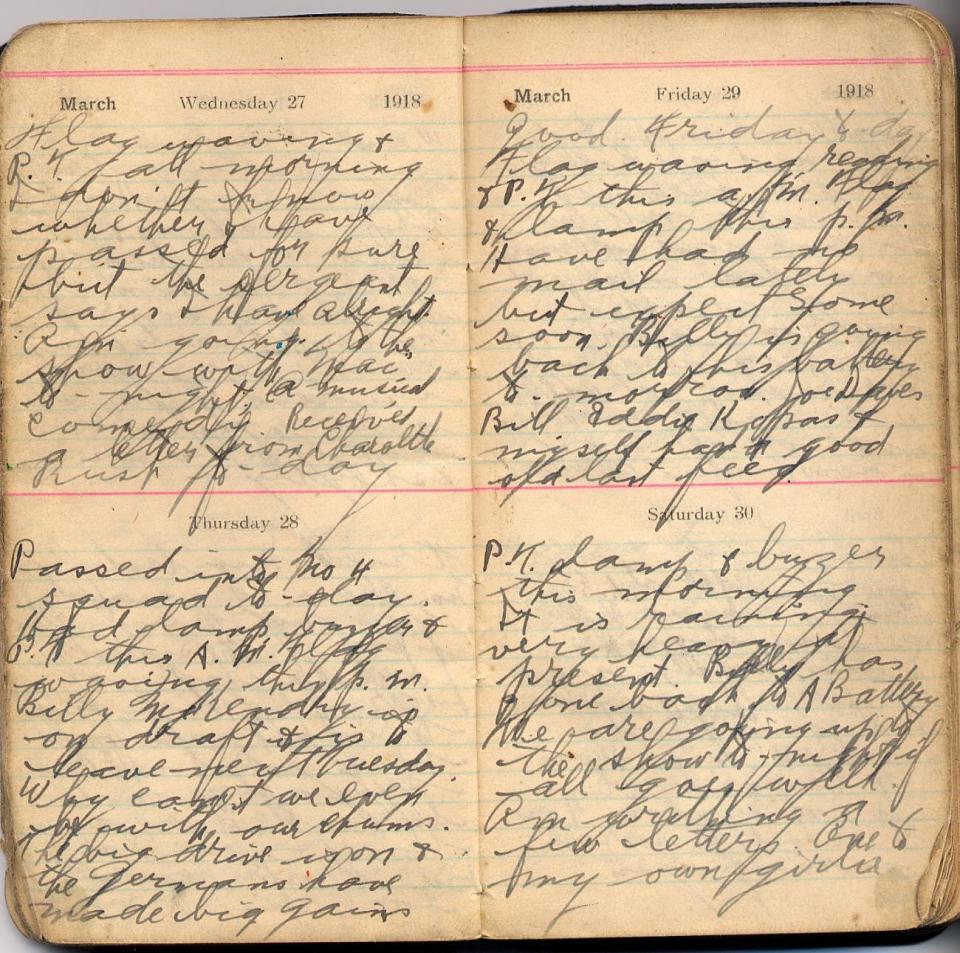 March Wednesday 27 1918
Flag waving &
P. T. all morning
I don't know
whether I have
passed for sure
but the sergeant
says I have alright
Am going to the
show with Mac
to-night. A musical
comedy. Received
a letter from Charlotte
Rush to-day
Thursday 28
Passed into No 4
squad to-day.
Had lamp buzzer &
P.T this A. M. Flag
waving this p. m.
Billy McKendry is
on draft & is to
leave next Tuesday
Why can't we ever
be with our chums.
The big drive is on &
the Germans have
made big gains
March Friday 29 1918
Good Friday to-day
Flag waving reading
& P.T. this a.m. Flag
& lamp this p.m.
Have had no
mail lately
but expect some
soon. Billy is going
back to his battery
to-morrow. Joe
Bill Eddie &
myself had a good
old last feed
Saturday 30
P.T. lamp & buzzer
this morning.
It is raining
very heavy at
present. Billy has
gone back to A Battery
We are going up to
the show to-night if
all goes well.
Am writing a
few letters. One to
my own girlie